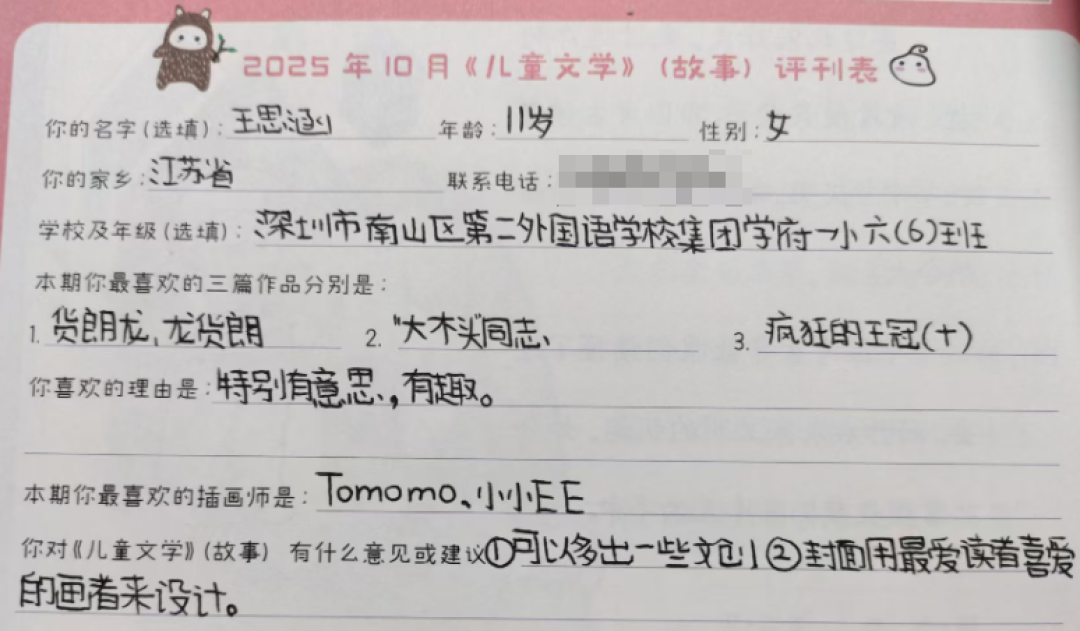 2025年10月《儿童文学》(故事) 评刊表
你的名字(选填): 王思涵 年龄: 11岁 性别: 女
你的家乡: 江苏省 联系电话:
学校及年级(选填): 深圳市南山区第二外国语学校集团学府一小六(6)班
本期你最喜欢的三篇作品分别是:
1. 货郎龙,龙货郎 2. "大木头"同志 3. 疯狂的王冠(十)
你喜欢的理由是: 特别有意思,有趣。
本期你最喜欢的插画师是: Tomomo、小小EE
你对《儿童文学》(故事) 有什么意见或建议①可以多出一些文创②封面用最爱读者喜爱
的画者来设计。